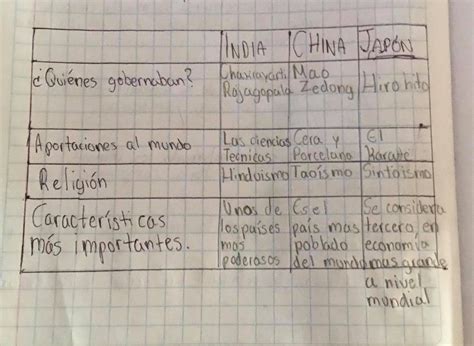 INDIA CHINA JAPÓN
¿Quiénes gobernaban? Chakravarti Mao Hirohito
Rajagopala Zedong
Aportaciones al mundo Las ciencias Cera y El
Tecnicas Porcelana Karate
Religión Hinduismo Taoísmo Sintoísmo
Características Unos de Es el Se considera
más importantes. los países país mas tercera, en
mas poblado economia
poderosos del mundo mas grande
a nivel
mundial